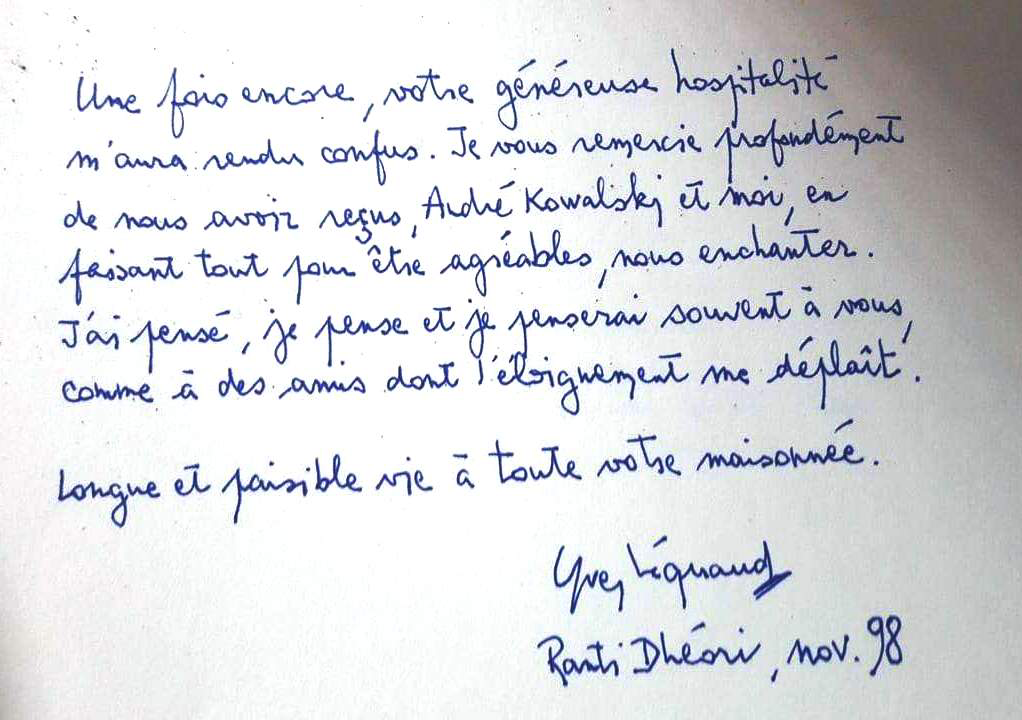 Une fois encore, votre généreuse hospitalité
m'aura rendu confus. Je vous remercie profondément
de nous avoir reçus, André Kowalski et moi, en
faisant tout pour être agréables, nous enchanter.
J'ai pensé, je pense et je penserai souvent à vous,
comme à des amis dont l'éloignement me déplaît.
Longue et paisible vie à toute votre maisonnée.
Yves Léquaud
Ranti Dhéori, nov. 98